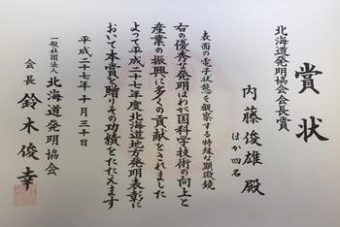 賞状
北海道発明協会会長賞
内藤俊雄殿
ほか四名
表面の電子状態を観察する特殊な顕微鏡
右の優秀な発明はわが国科学技術の向上と
産業の振興に多くの貢献をされました
よつて平成二十七年度北海道地方発明表彰に
おいて本賞を贈りその功績をたたえます
平成二十七年十月三十日
一般社団法人北海道発明協会
会長鈴木俊幸